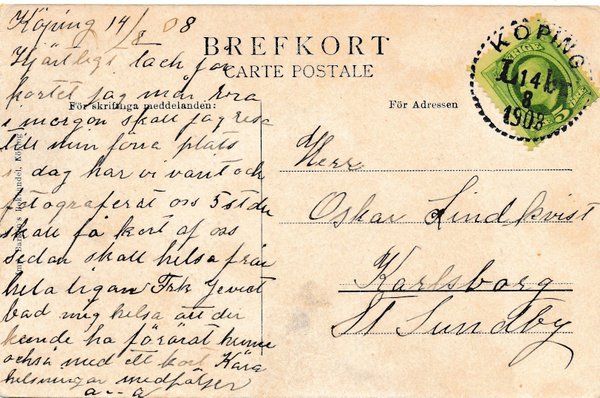 Köping 14/8 08
Hjärtligt tack för
kortet jag mår bra
i morgon skall jag resa
till min förra plats
i dag har vi varit och
fotograferat oss 5 st du
skall få kort af oss
sedan skall helsa från
hela ligan Frk
bad mig helsa att du
ha förärat henne
också med ett kort Kära
helsningar medföljer
a--a
BREFKORT
CARTE POSTALE
För skriftliga meddelanden:
För Adressen
Bokhandel, Köping
KÖPING
SVERIGE
14
8
1908
5
Herr
Oskar Lindkvist
Karlsborg
St Sundby